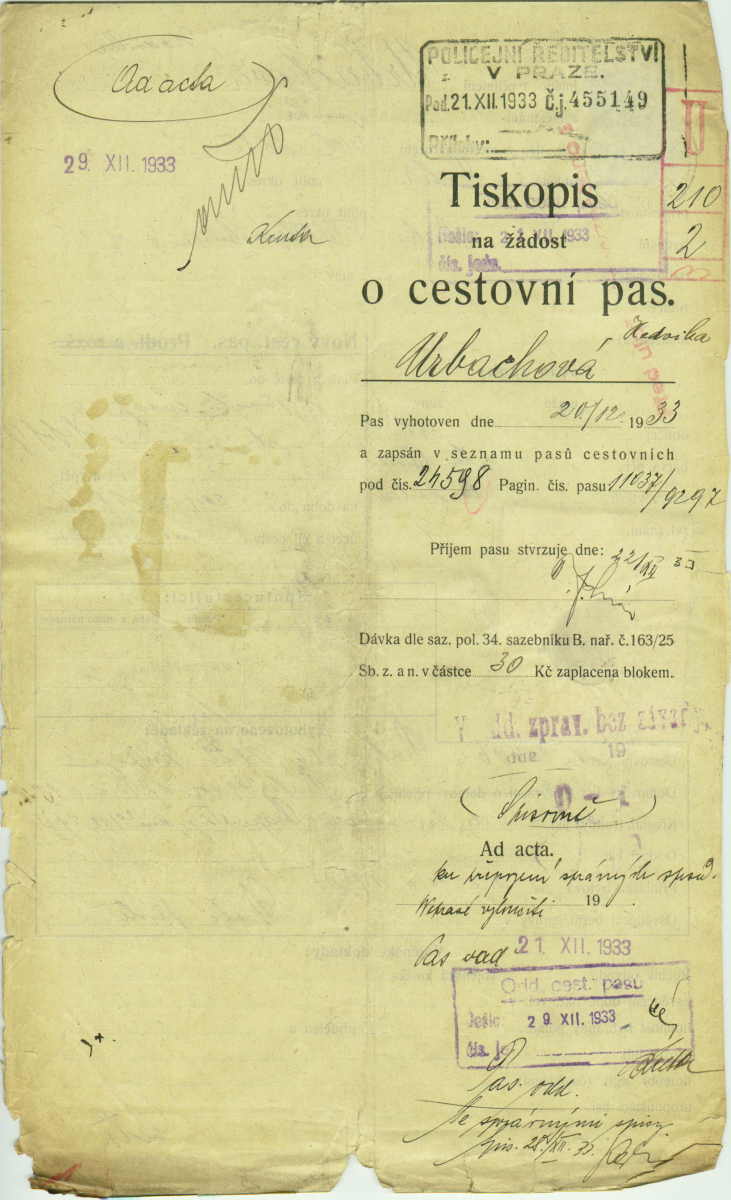 Ad acta
29. XII. 1933
POLICEJNÍ ŘEDITELSTVÍ
V PRAZE.
Pod. 21. XII. 1933 Č.j. 455149
Přílohy:
Tiskopis
210
Došlo: XII. 1933
2
na žádost
čís. jedn.
o cestovní pas.
Hedvika
Urbachová,
Pas vyhotoven dne 20/12. 1933
a zapsán v seznamu pasů cestovních
pod čís. 24598 Pagin. čís. pasu 11037/9297
Příjem pasu stvrzuje dne: 22/XII 33
Dávka dle saz. pol. 34. sazebníku B. nař. č. 163/25
Sb. z. a n. v částce 30 Kč zaplacena blokem.
V odd. zprav. bez závady
19
Spisovně
Ad acta.
ku připojení správných spisů.
19
Pas vyd. 21. XII. 1933
Odd. cest. pasů
Došlo: 29. XII. 1933
čís. je
Pas. odd.
Se správnými spisy